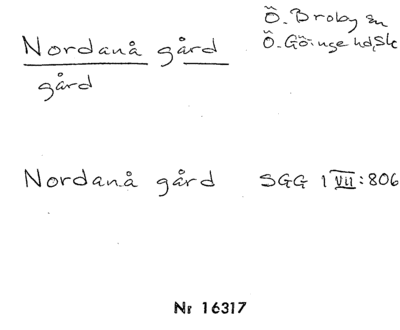 Nordanå gård
gård
Ö. Broby sn
Ö. Göinge hd, Sk
Nordanå gård SGG 1 VII:806
Nr 16317